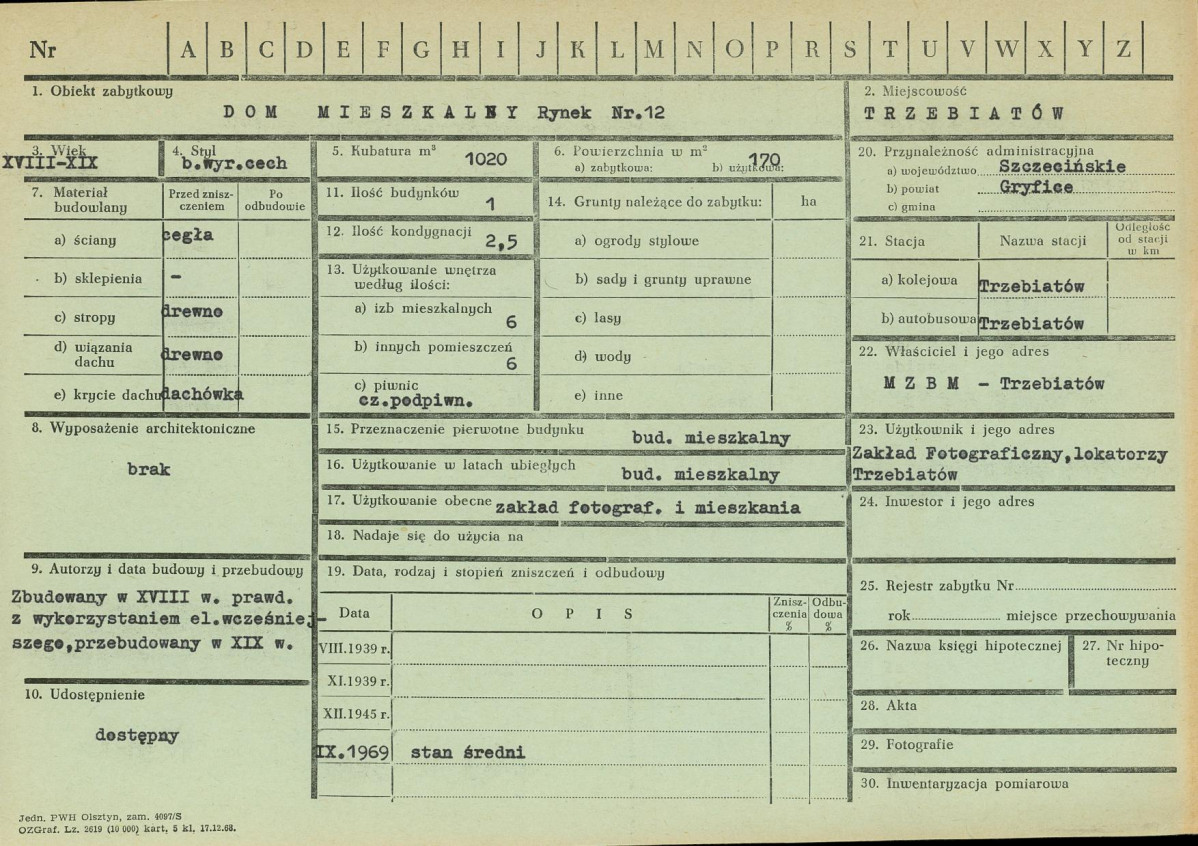 Nr A B C D E F G H I J K L M N O P R S T U V W X Y Z
1. Obiekt zabytkowy
DOM MIESZKALNY Rynek Nr.12
2. Miejscowość
TRZEBIATÓW
3. Wiek
XVIII-XIX
4. Styl
b.wyr.cech
5. Kubatura m³ 1020
6. Powierzchnia w m² 170
a) zabytkowa: b) użytkowa:
7. Materiał budowlany
Przed zniszczeniem
Po odbudowie
a) ściany cegła
b) sklepienia -
c) stropy drewno
d) wiązania dachu drewno
e) krycie dachu dachówka
8. Wyposażenie architektoniczne
brak
9. Autorzy i data budowy i przebudowy
Zbudowany w XVIII w. prawd.
z wykorzystaniem el.wcześniej-
szego,przebudowany w XIX w.
10. Udostępnienie
dostępny
11. Ilość budynków 1
12. Ilość kondygnacji 2,5
13. Użytkowanie wnętrza
według ilości:
a) izb mieszkalnych 6
b) innych pomieszczeń 6
c) piwnic
cz.podpiwn.
14. Grunty należące do zabytku: ha
a) ogrody stylowe
b) sady i grunty uprawne
c) lasy
d) wody
e) inne
15. Przeznaczenie pierwotne budynku bud. mieszkalny
16. Użytkowanie w latach ubiegłych bud. mieszkalny
17. Użytkowanie obecne zakład fotograf. i mieszkania
18. Nadaje się do użycia na
19. Data, rodzaj i stopień zniszczeń i odbudowy
Data OPIS Zniszczenia % Odbudowa %
VIII.1939 r.
XI.1939 r.
XII.1945 r.
IX.1969 stan średni
20. Przynależność administracyjna
a) województwo Szczecińskie
b) powiat Gryfice
c) gmina
21. Stacja Nazwa stacji Odległość od stacji w km
a) kolejowa Trzebiatów
b) autobusowa Trzebiatów
22. Właściciel i jego adres
MZBM - Trzebiatów
23. Użytkownik i jego adres
Zakład Fotograficzny,lokatorzy
Trzebiatów
24. Inwestor i jego adres
25. Rejestr zabytku Nr
rok miejsce przechowywania
26. Nazwa księgi hipotecznej
27. Nr hipo-
teczny
28. Akta
29. Fotografie
30. Inwentaryzacja pomiarowa
Jedn. PWH Olsztyn, zam. 4097/S
OZGraf. Lz. 2619 (10 000) kart, 5 kl, 17.12.68.